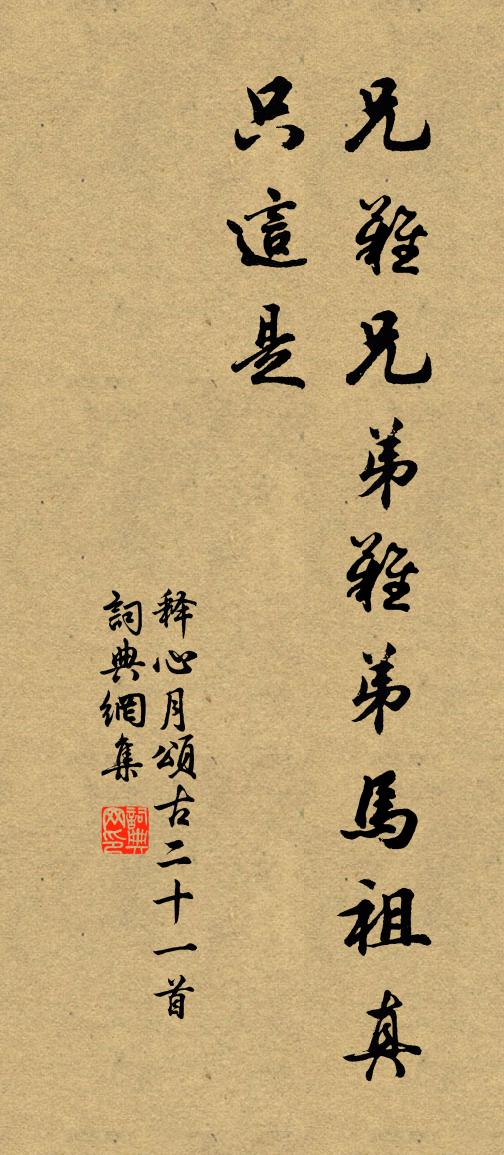 兄難兄弟難弟馬祖真
只這是
释心月頌古二十一首
詞典網集
詞典网印